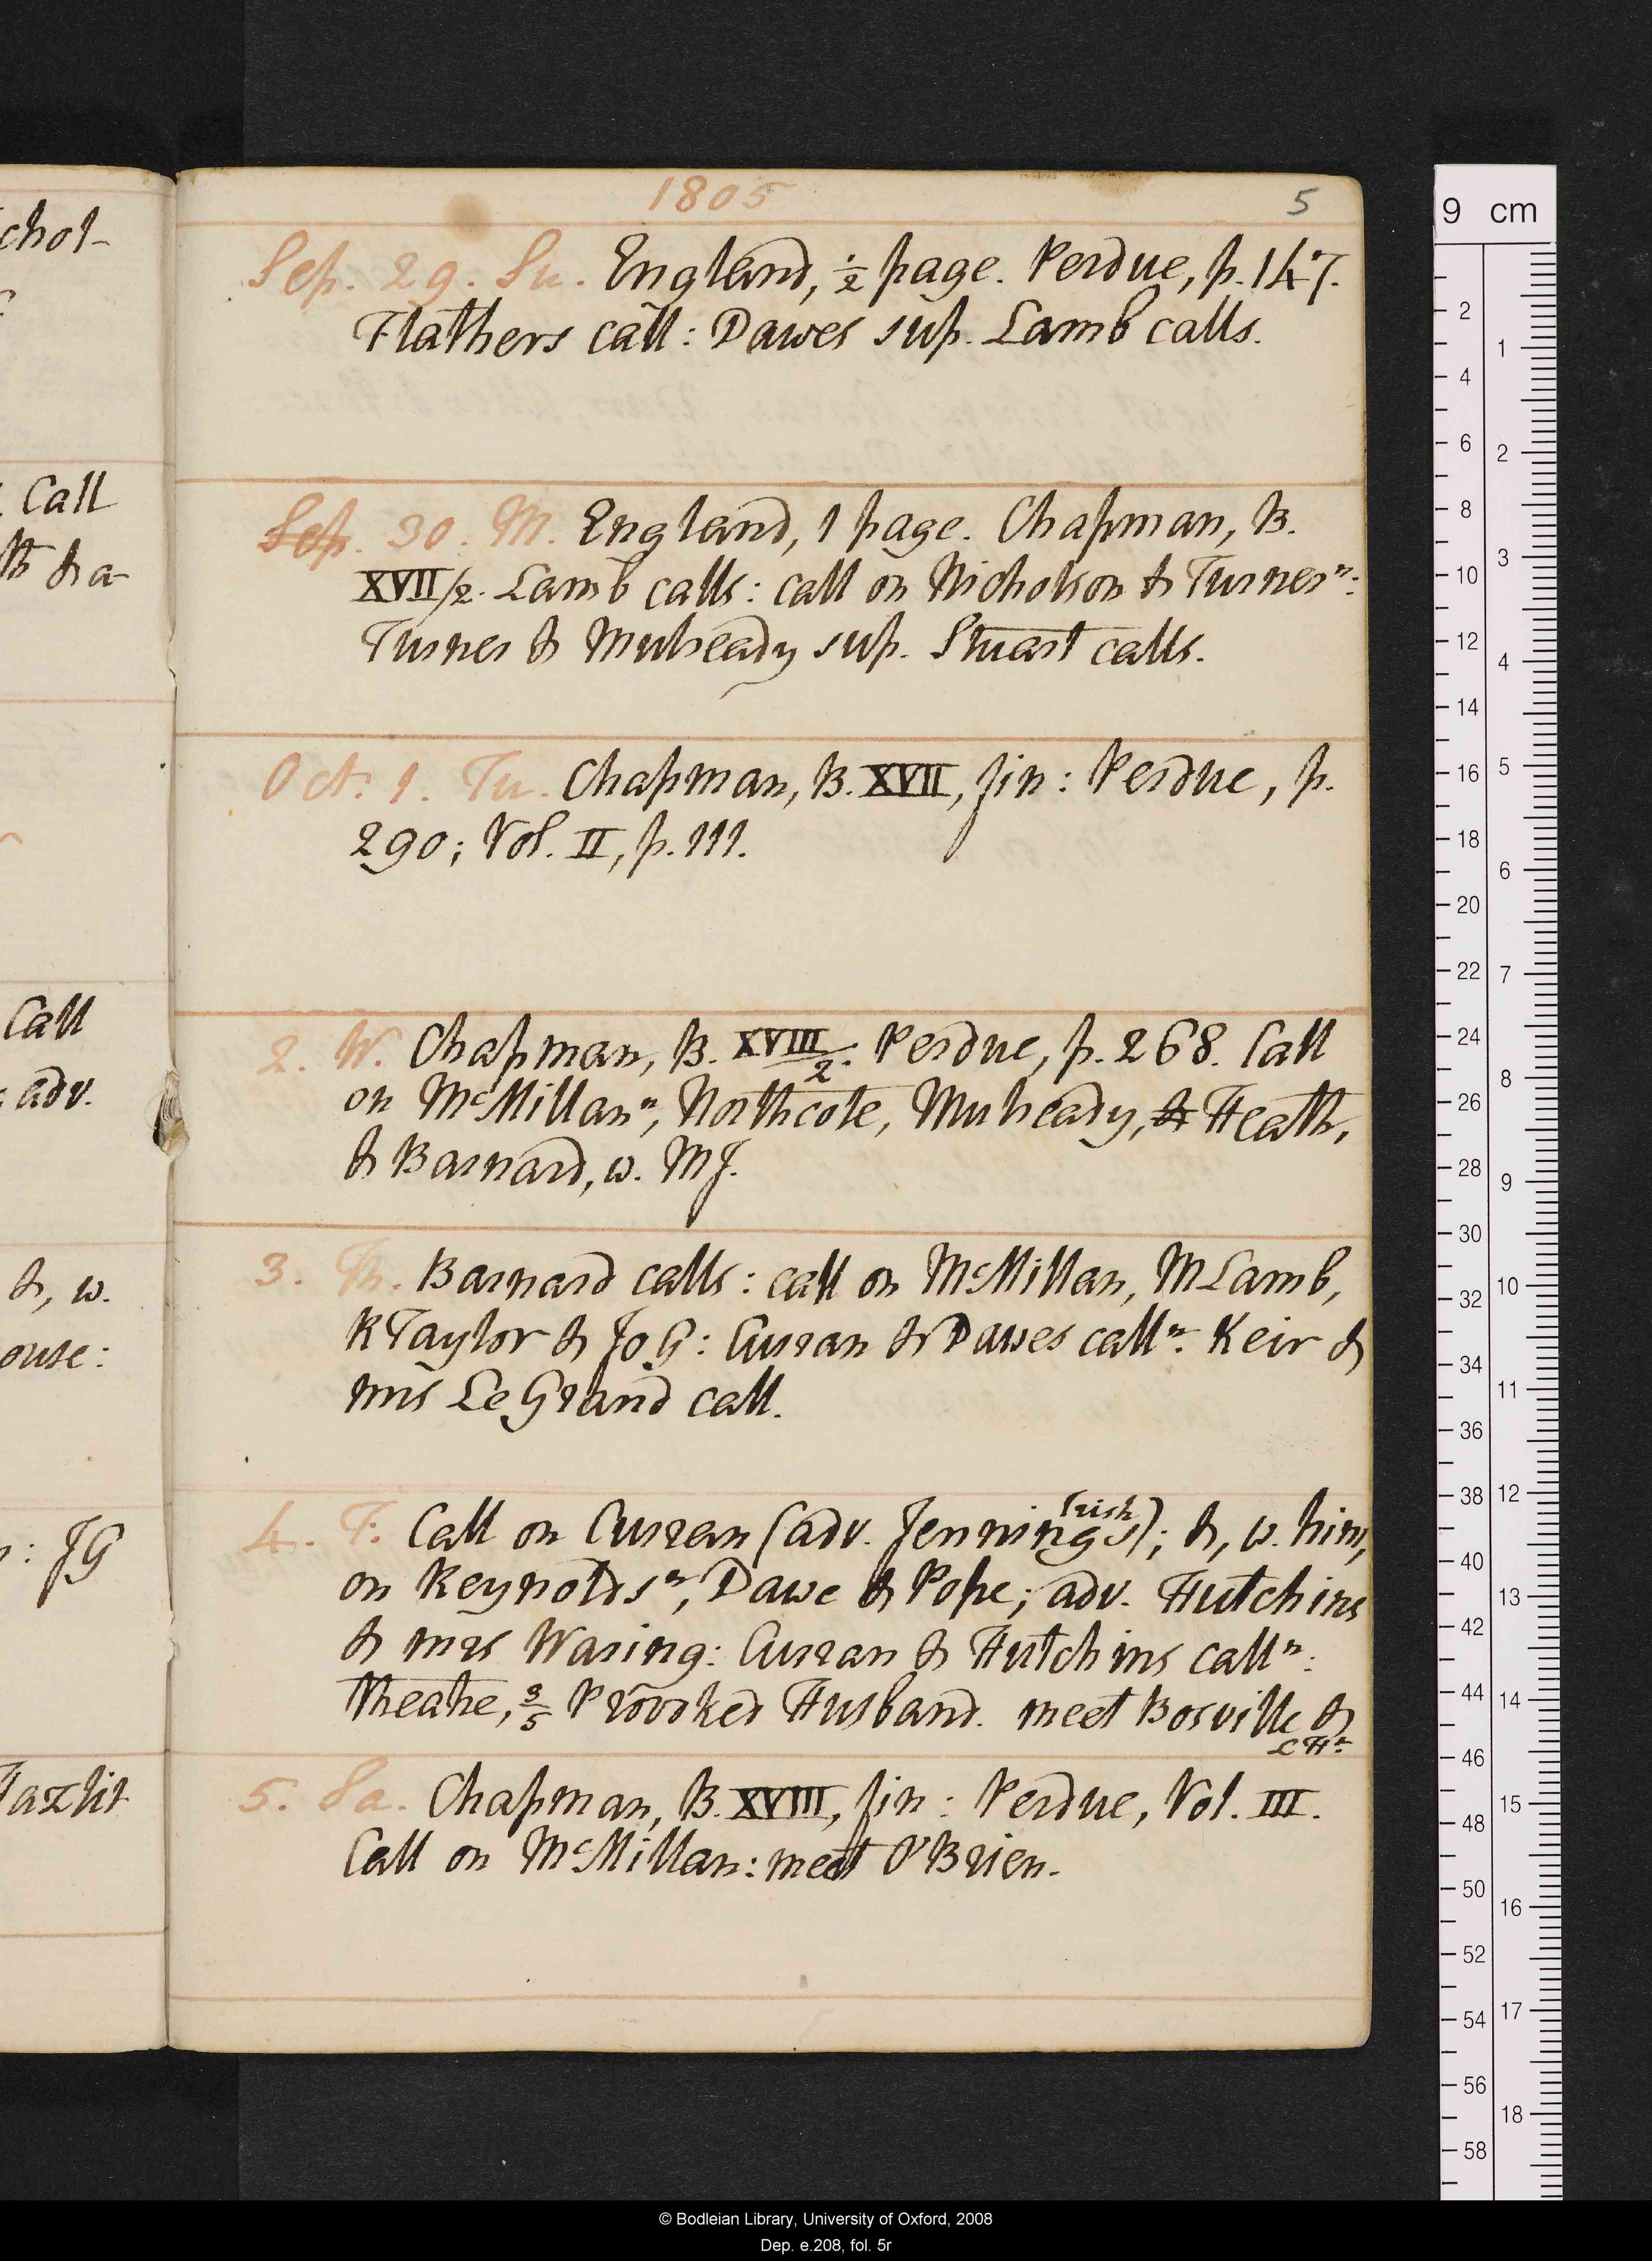 1805
5
Sep. 29. Su. England, ½ page. Perdue, p. 147.
Flathers call: Dawes sup. Lamb calls.
Sep. 30. M. England, 1 page. Chapman, B.
XVII/2. Lamb calls: call on Nicholson & Turner ⁿ:
Turner & Mulready sup. Stuart calls.
Oct. 1. Tu. Chapman, B. XVII, fin: Perdue, p.
290; Vol. II, p. 111.
2. W. Chapman, B. XVIII/2. Perdue, p. 268. Call
on McMillan ⁿ, Northcote, Mulready, & Heath,
& Barnard, w. MJ.
3. Th. Barnard calls: call on McMillan, M Lamb,
R Taylor & Jo G: Curran & Dawes call ⁿ. Keir &
mis Le Grand call.
4. F. Call on Curran (adv. Jennings Irish); &, w. him,
on Reynolds ⁿ, Dawe & Pope; adv. Hutchins
& mrs Waring: Curran & Hutchins call ⁿ:
theatre, 3/5 Provoked Husband. meet Bosville &
LHⁿ.
5. Sa. Chapman, B. XVIII, fin: Perdue, Vol. III.
Call on McMillan: meet O'Brien.
chol-
Call
& a-
Call
adv.
&, w.
ouse:
: JG
azlit
9 cm
2
4
6
8
10
12
14
16
18
20
22
24
26
28
30
32
34
36
38
40
42
44
46
48
50
52
54
56
58
1
2
3
4
5
6
7
8
9
10
11
12
13
14
15
16
17
18
© Bodleian Library, University of Oxford, 2008
Dep. e.208, fol. 5r